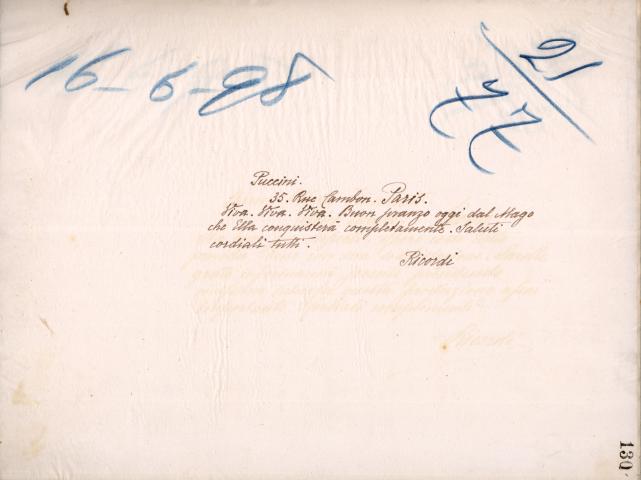 16-6-98
21/77
Puccini.
35. Rue Cambon. Paris.
Viva. Viva. Viva. Buon pranzo oggi dal Mago
che Ella conquisterà completamente. Saluti
cordiali tutti.
Ricordi
Ricordi
130